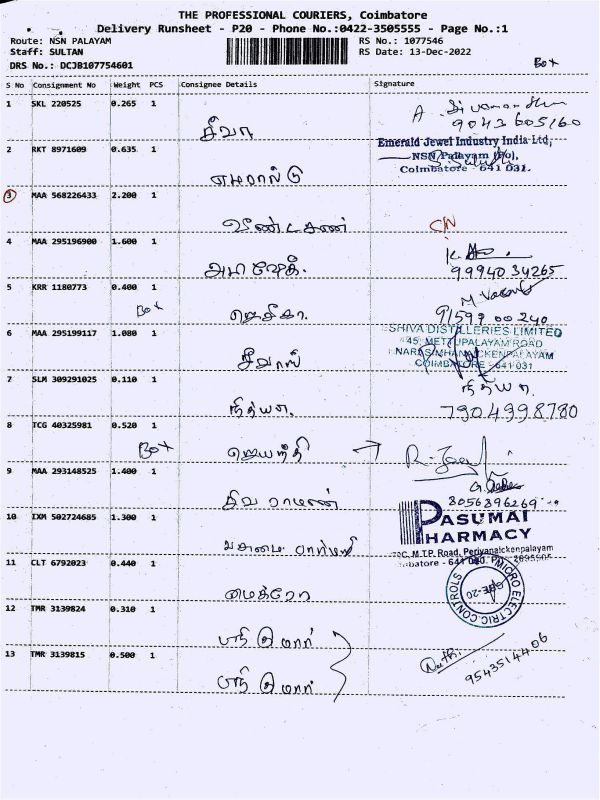 THE PROFESSIONAL COURIERS, Coimbatore
Delivery Runsheet - P20 - Phone No.:0422-3505555 - Page No.:1
Route: NSN PALAYAM
Staff: SULTAN
DRS No.: DCJB107754601
RS No.: 1077546
RS Date: 13-Dec-2022
Box
S No Consignment No Weight PCS Consignee Details Signature
1 SKL 220525 0.265 1
சிவா
9043605160
2 RKT 8971609 0.635 1
Emerald Jewel Industry India Ltd,
NSN Palayam (Po),
Coimbatore - 641 031.
எமரால்டு
3 MAA 568226433 2.200 1
CN
4 MAA 295196900 1.600 1
99940 34265
5 KRR 1180773 0.400 1
Box ஜெசிகா.
91599 00 240
6 MAA 295199117 1.080 1
SHIVA DISTILLERIES LIMITED
45, METTUPALAYAM ROAD
NARASIMHANAICKENPALAYAM
COIMBATORE - 641 031
7 SLM 309291025 0.110 1
நித்யா. நித்யா
7904998780
8 TCG 40325981 0.520 1
Box ஜெயந்தி →
9 MAA 293148525 1.400 1
சிவ ராமன்
10 IXM 502724685 1.300 1
PASUMAI
PHARMACY
M.T.P. Road, Periyanaickenpalayam
பசுமை பார்மசி
11 CLT 6792023 0.440 1
மைக்ரோ
MICRO ELECTRIC CONTROLS
12 TMR 3139824 0.310 1
ஸ்ரீ குமார்
9543514406
13 TMR 3139815 0.500 1
ஸ்ரீ குமார்